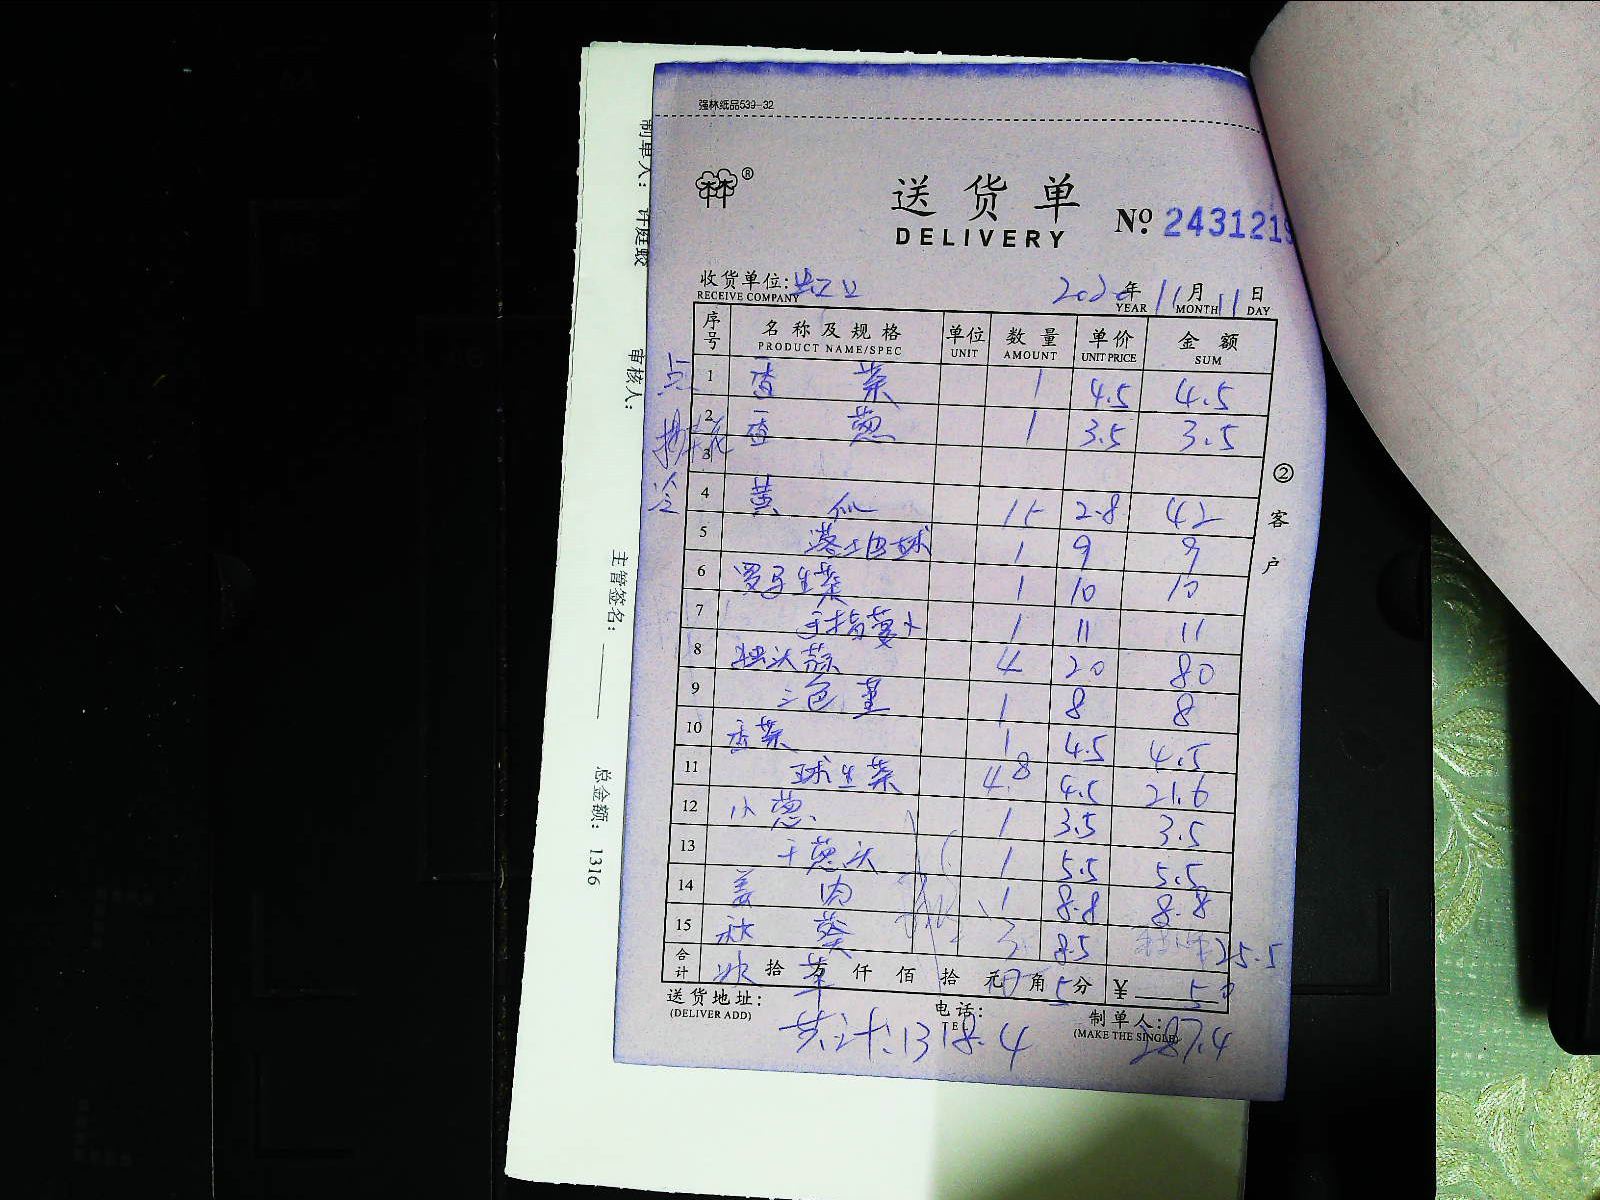 强林纸品539-32
送货单
DELIVERY
№ 2431219
收货单位:
RECEIVE COMPANY
2020年11月11日
YEAR MONTH DAY
序号 名称及规格 单位 数量 单价 金额
PRODUCT NAME/SPEC UNIT AMOUNT UNIT PRICE SUM
点 1 香菜 1 4.5 4.5
2 香葱 1 3.5 3.5
3
冷 4 黄瓜 15 2.8 42
5 1 9 9
6 罗马生菜 1 10 10
7 手指萝卜 1 11 11
8 独头蒜 4 20 80
9 三色堇 1 8 8
10 香菜 1 4.5 4.5
11 球生菜 4.8 4.5 21.6
12 小葱 1 3.5 3.5
13 干葱头 1 5.5 5.5
14 姜肉 1 8.8 8.8
15 秋葵 3 8.5 25.5
合计 拾万仟佰拾元角分 ¥
冰草 5 50
送货地址:
(DELIVER ADD)
电话:
TEL
制单人:
(MAKE THE SINGLE)
共计:1318.4
287.4
②客户
制单人: 许庭蛟
审核人:
主管签名:
总金额: 1316